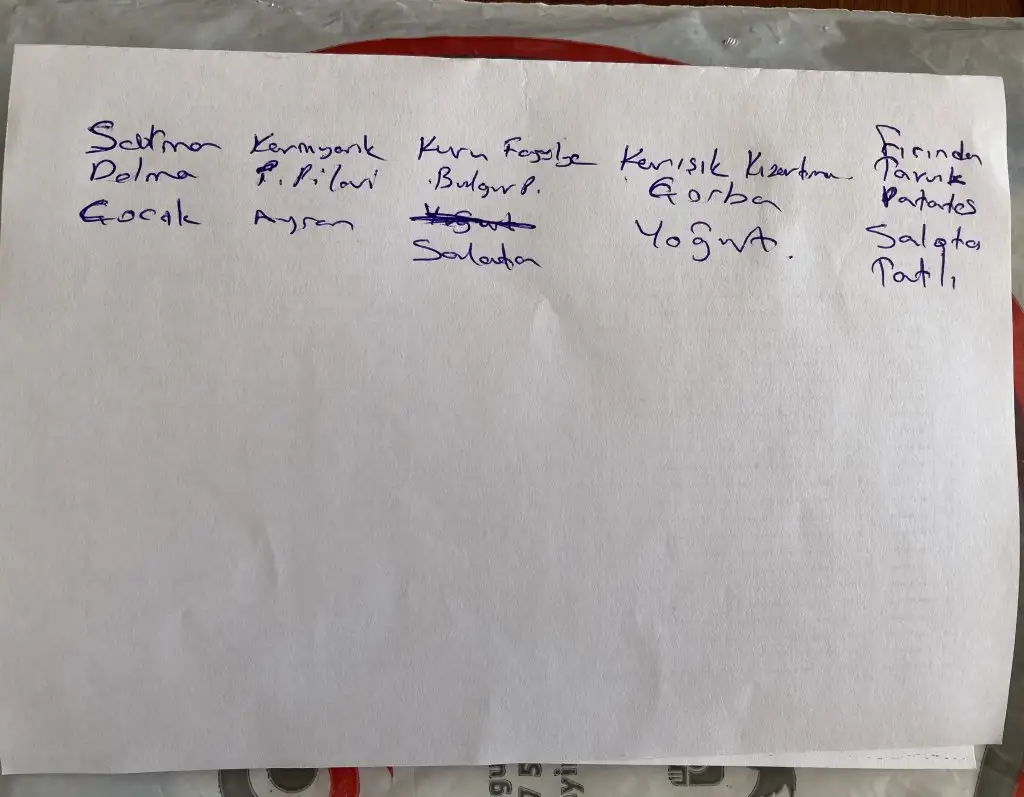 Sarma
Dolma
Cacık
Karnıyarık
P. Pilavi
Ayran
Kuru Fasulye
Bulgur P.
Yoğurt
Salata
Karışık Kızartma
Çorba
Yoğurt.
Fırında
Tavuk
Patates
Salata
Tatlı
gu
7 5
yi